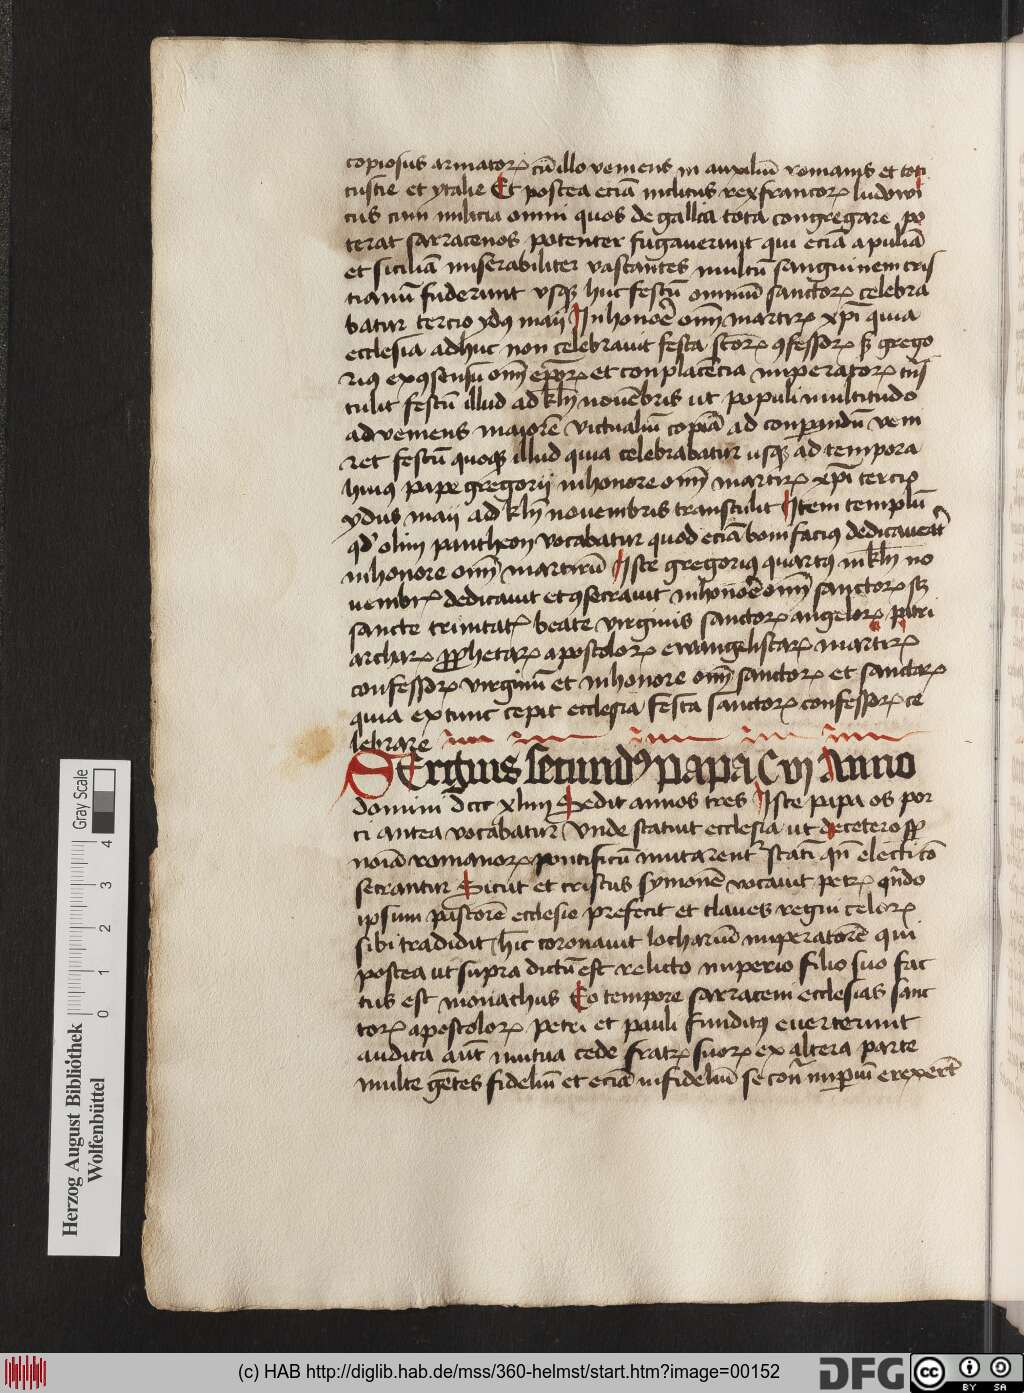 copiosus armatorꝝ cū illo veniens in auxiliū romanis et toti
tuscie et ytalie Et postea eciā inclitus rex francorꝝ ludowi
cus cum milicia omni quos de gallia tota congregare po
terat sarracenos potenter fugaverunt qui eciā apuliā
et siciliā miserabiliter vastantes multū sanguinem cris
tianū fuderunt vsqꝫ huc festū omniū sanctorꝝ celebra
batur tercio ydꝰ maij In honoē om̄ martirꝝ xp̄i quia
ecclesia adhuc non celebrauit festa sc̄torꝝ ꝯfessorꝝ sꝫ grego
riꝰ ex ꝯsensu om̄ ep̄orꝝ et conplacēcia imperatorꝝ
tulit festū illud ad kl̄ novēbris ut populi multitudo
adveniens maiorē victualiū copiā ad conꝑandū veni
ret festū quoqꝫ illud quia celebrabatur usqꝫ ad tempora
huius pape gregorij in honore om̄ martirꝝ xp̄i tercio
ydus maij ad kl̄ novembris transtulit Item templū
qd̓ olim pantheon vocabatur quod eciā bonifacius dedicaverat
in honore om̄ martirū Iste gregoriꝰ quartꝰ in kl̄ no
uembrꝝ dedicauit et ꝯsecrauit in honoē om̄ sanctorꝝ sꝫ
sancte trinitatꝝ beate virginis sanctorꝝ angelorꝝ patri
archarꝝ ꝓphetarꝝ apostolorꝝ ewangelistarꝝ martirꝝ
confessorꝝ virginū et in honore om̄ sanctorꝝ et sanctarꝝ
quia ex tunc cepit ecclesia festa sanctorꝝ confessorꝝ ce
lebrare
SErgius secundꝰ papa Cvi Anno
domini dccc xliiij Sedit annos tres Iste papa os por
ci antea vocabatur Vnde statuit ecclesia ut de cetero
noīa romanorꝝ pontificū mutarent᷑ statī qn̄ electi cō
secrantur Sicut et cristus symonē vocauit petrꝝ qn̄do
ipsum pastorē ecclesie prefecit et claues regni celorꝝ
sibi tradidit hic coronauit lothariū imperatorē qui
postea ut supra dictū est relicto imperio filio suo fac
tus est monachus Eo tempore sarraceni ecclesias sanc
torꝝ apostolorꝝ petri et pauli funditꝰ euerterunt
audita aūt mutua cede fratrꝝ suorꝝ ex altera parte
multe gētes fideliū et eciā infideliū se conᷓ imꝑiū erexerūt
Gray Scale
0 1 2 3 4
Herzog August Bibliothek
Wolfenbüttel
(c) HAB http://diglib.hab.de/mss/360-helmst/start.htm?image=00152
DFG
cc
BY SA